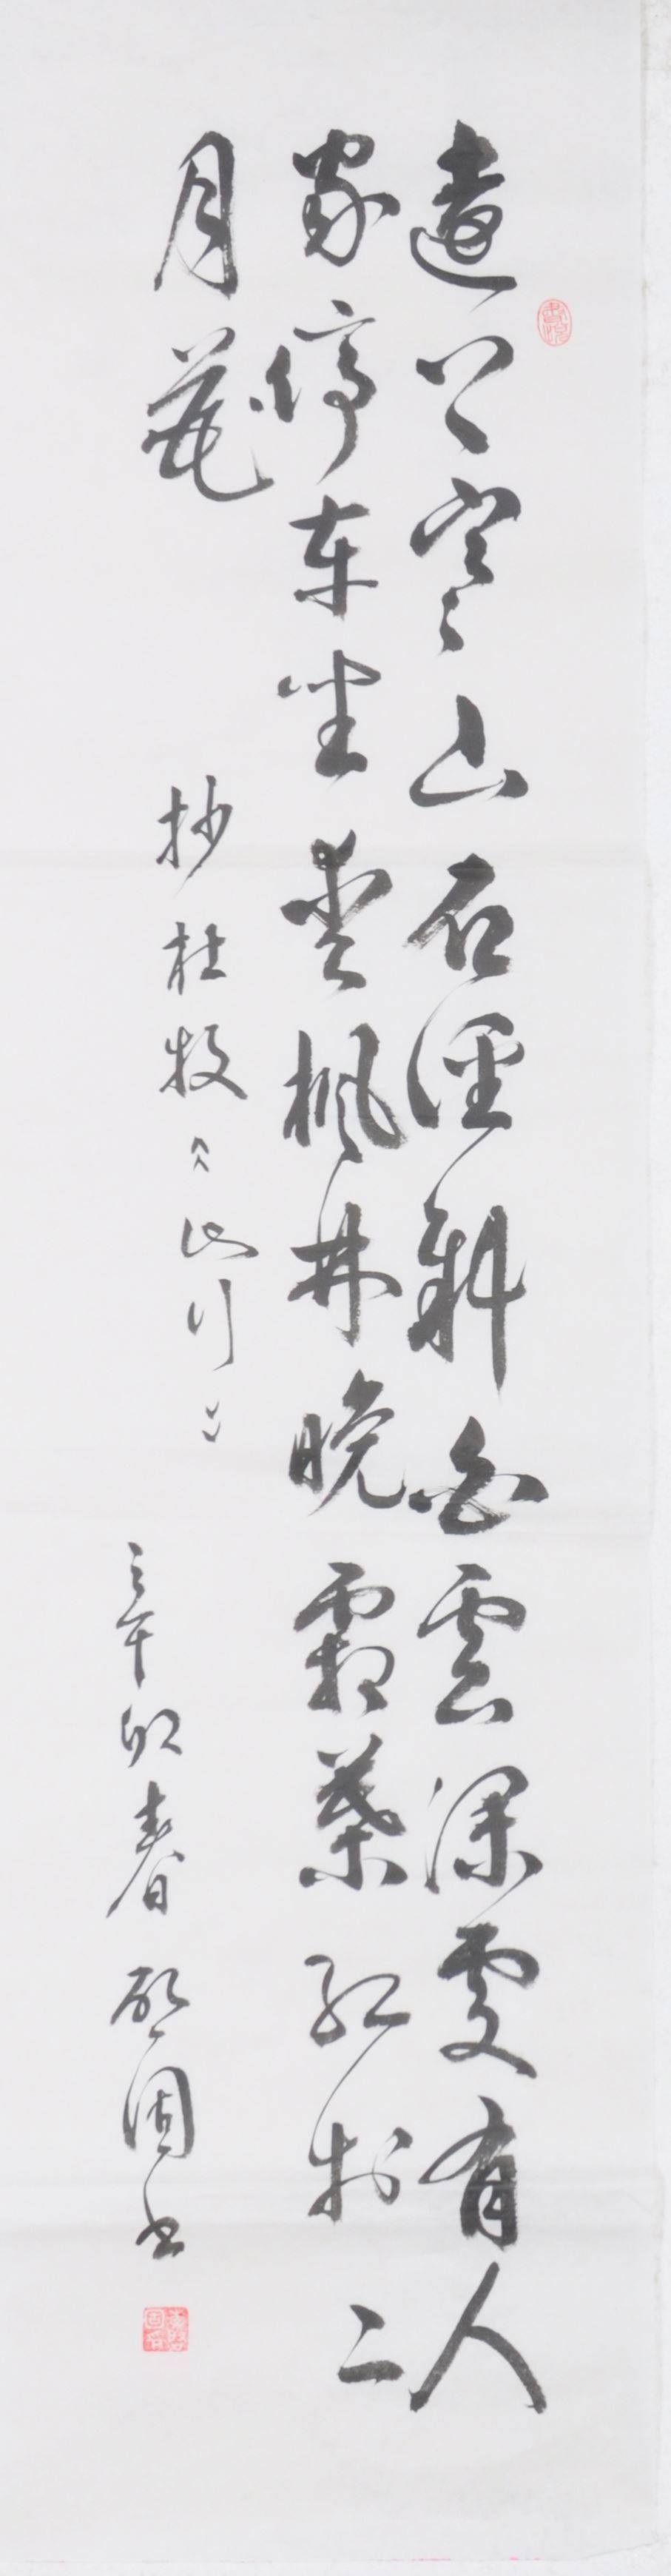 遠上寒山石徑斜白雲深處有人
家停車坐愛楓林晚霜葉紅於二
月花
抄杜牧《山行》
辛卯春 啟固書